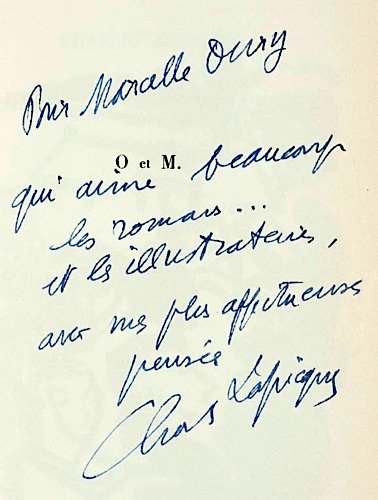 Pour Marcelle Oury
Q et M.
qui aime beaucoup
les romans...
et les illustrateurs,
avec mes plus affectueuses
pensée
Charles Lapicque